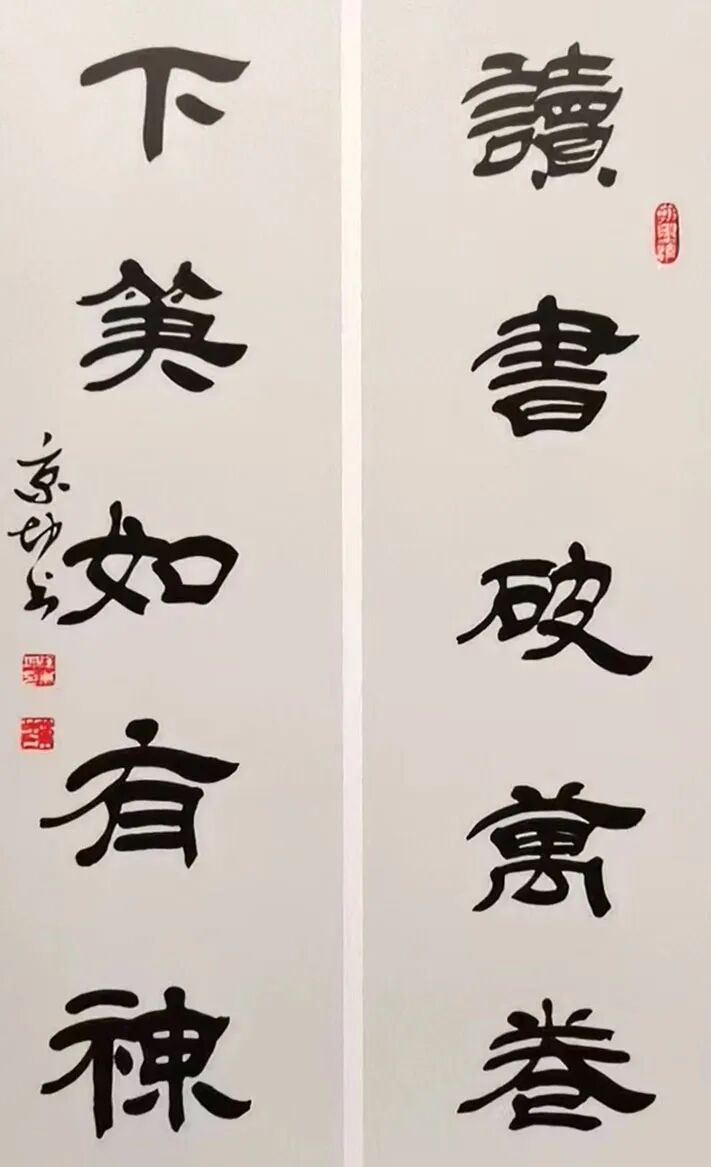 讀書破萬卷
下筆如有神
京 书